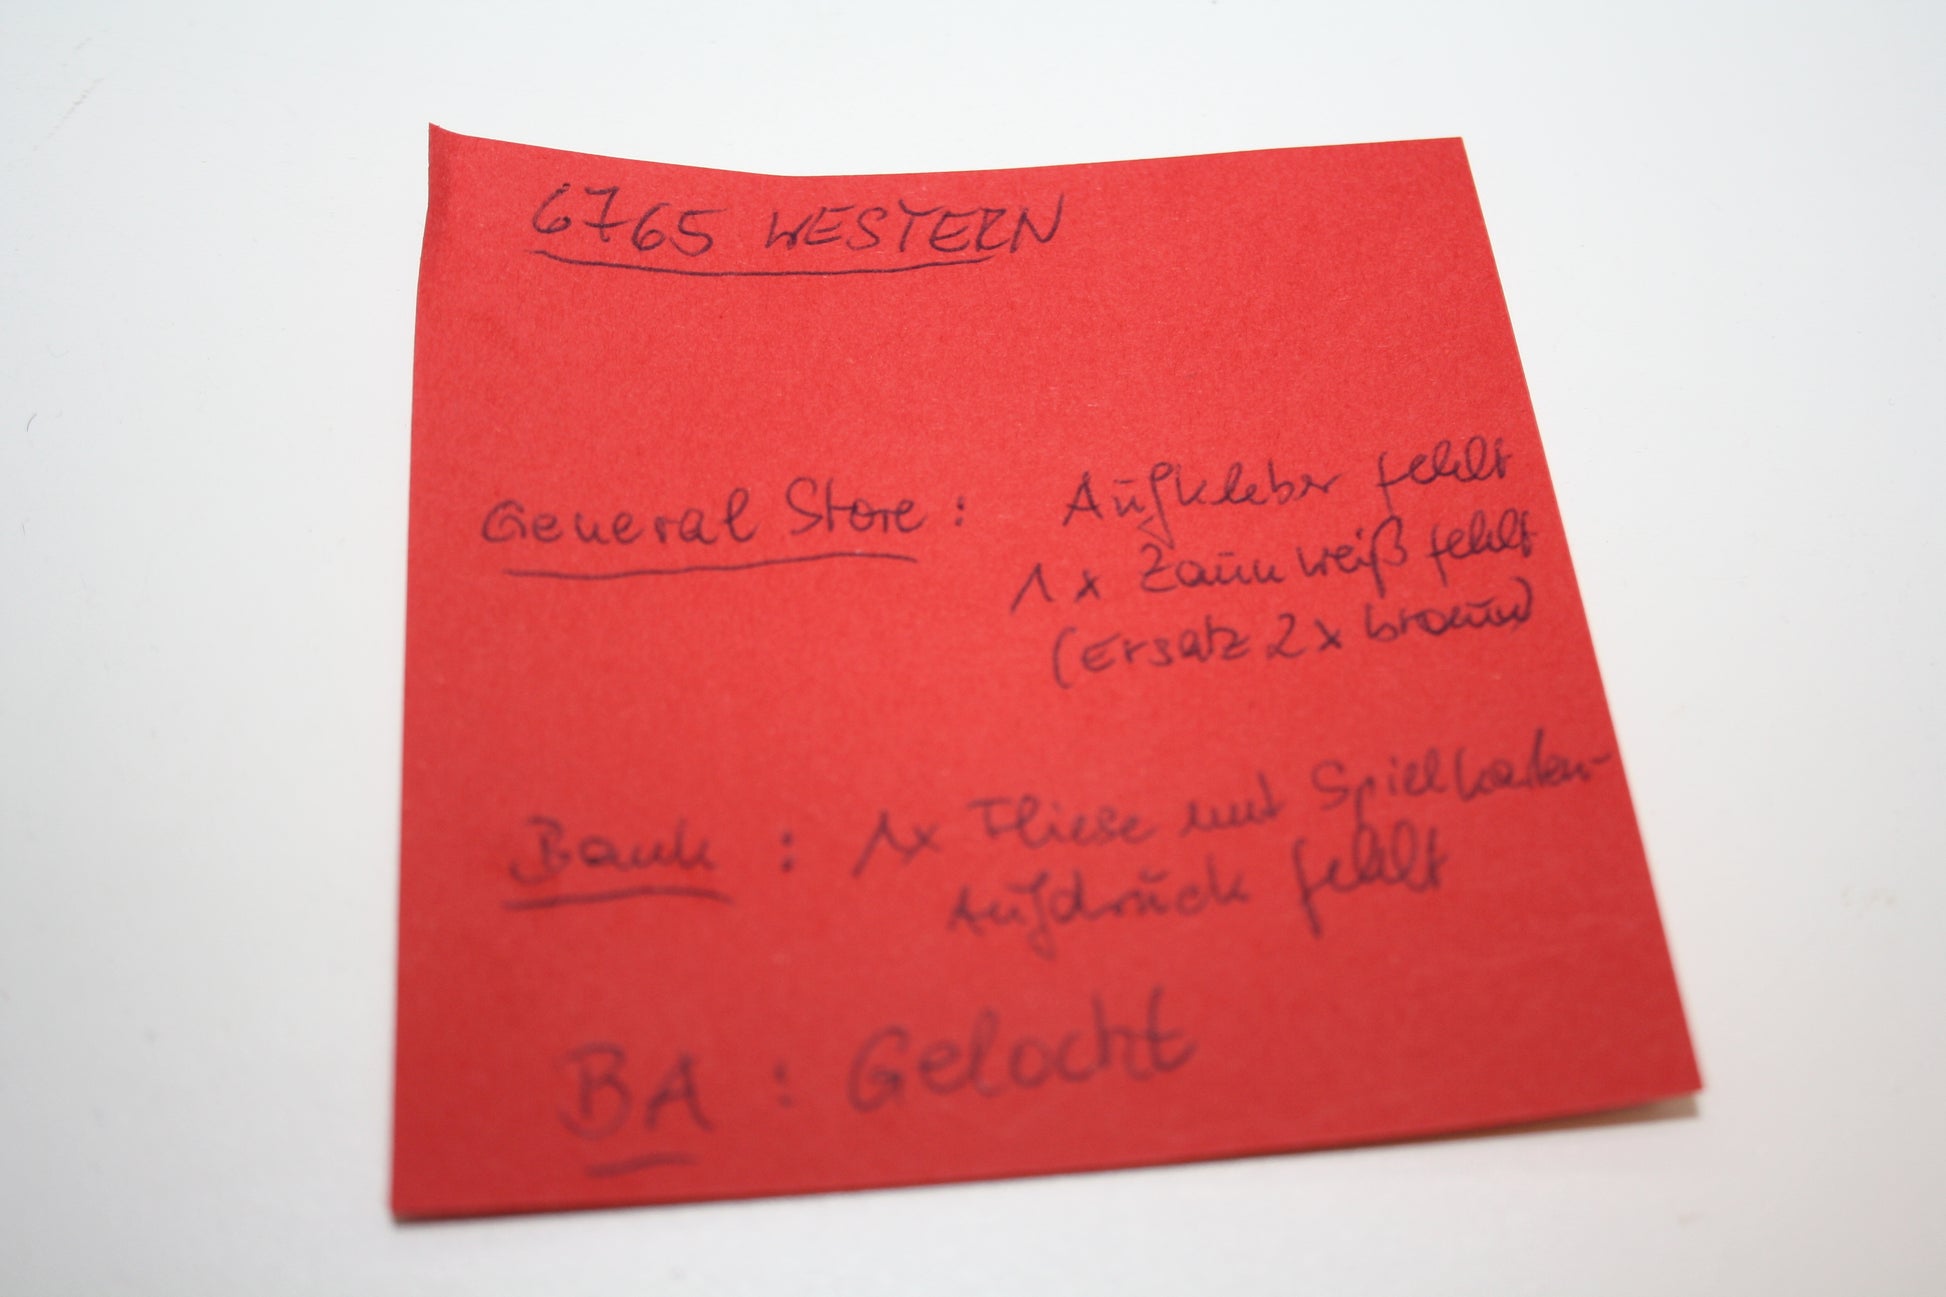 6765 WESTERN
General Store : Aufkleber fehlt
1x Zaun weiß fehlt
(Ersatz 2x braun)
Bank : 1x Fliese mit Spielkarten-
Aufdruck fehlt
BA : Gelocht